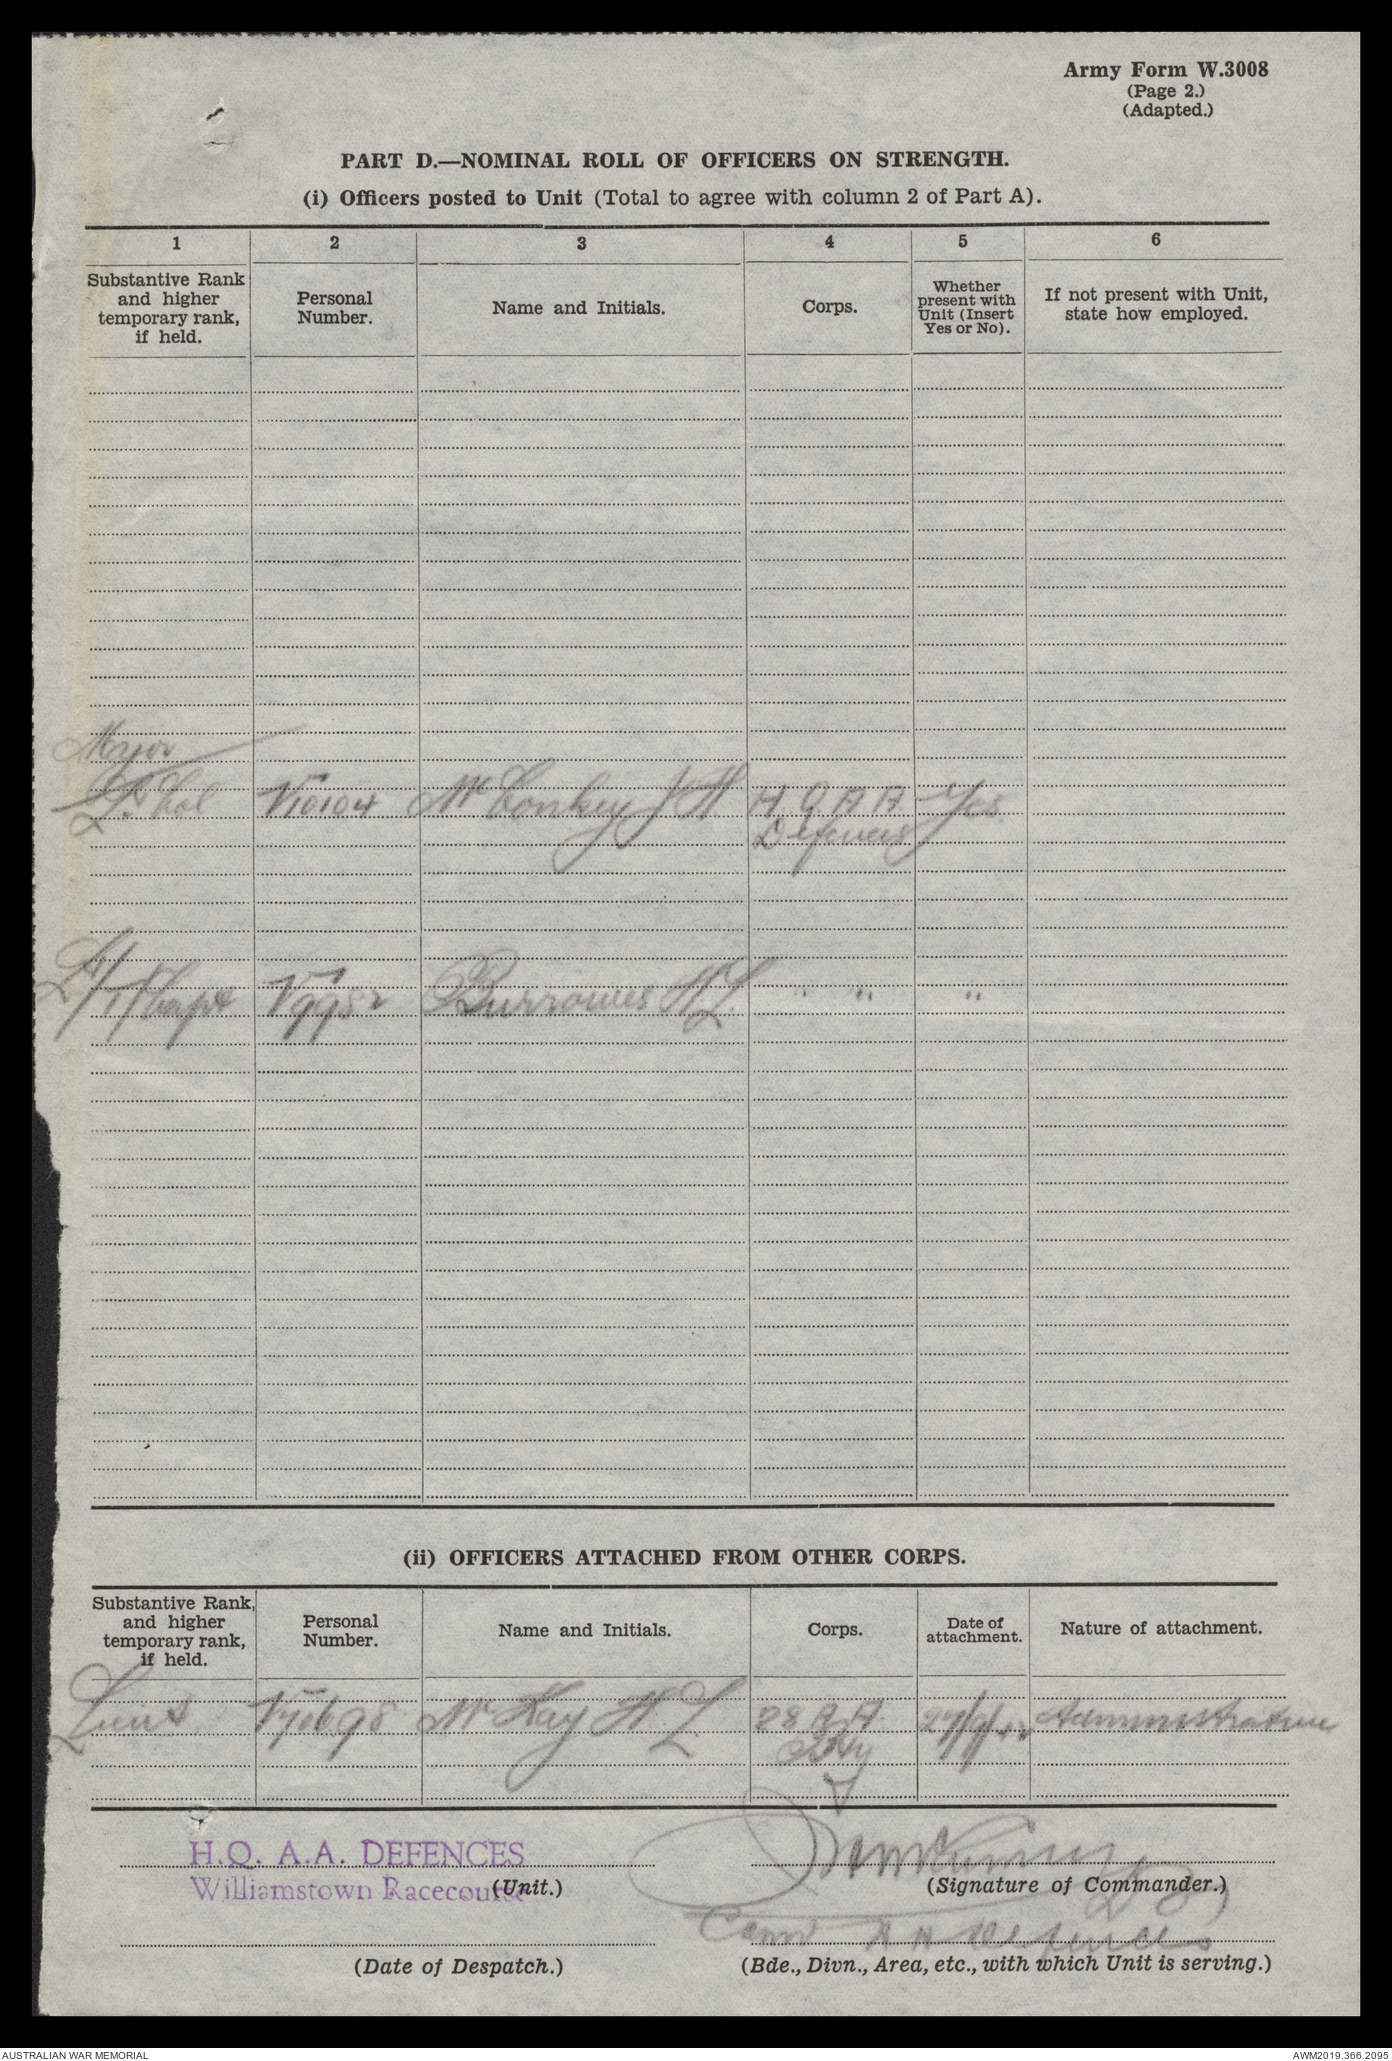 Army Form W.3008
(Page 2.)
(Adapted.)
PART D.—NOMINAL ROLL OF OFFICERS ON STRENGTH.
(i) Officers posted to Unit (Total to agree with column 2 of Part A).
1 2 3 4 5 6
Substantive Rank and higher temporary rank, if held. Personal Number. Name and Initials. Corps. Whether present with Unit (Insert Yes or No). If not present with Unit, state how employed.
Major
Lt. Col V10104 McConkey J H. H. Q A A Yes.
Defences
Lt/T/Capt V9952 Burrowes H L. " " "
(ii) OFFICERS ATTACHED FROM OTHER CORPS.
Substantive Rank, and higher temporary rank, if held. Personal Number. Name and Initials. Corps. Date of attachment. Nature of attachment.
Lieut McKay H. L. 28 A. A. Administrative
Bty
H.Q. A.A. DEFENCES
Williamstown Racecourse
(Unit.)
(Signature of Commander.)
Comd A A Defences
(Date of Despatch.)
(Bde., Divn., Area, etc., with which Unit is serving.)
AUSTRALIAN WAR MEMORIAL
AWM2019.366.2095